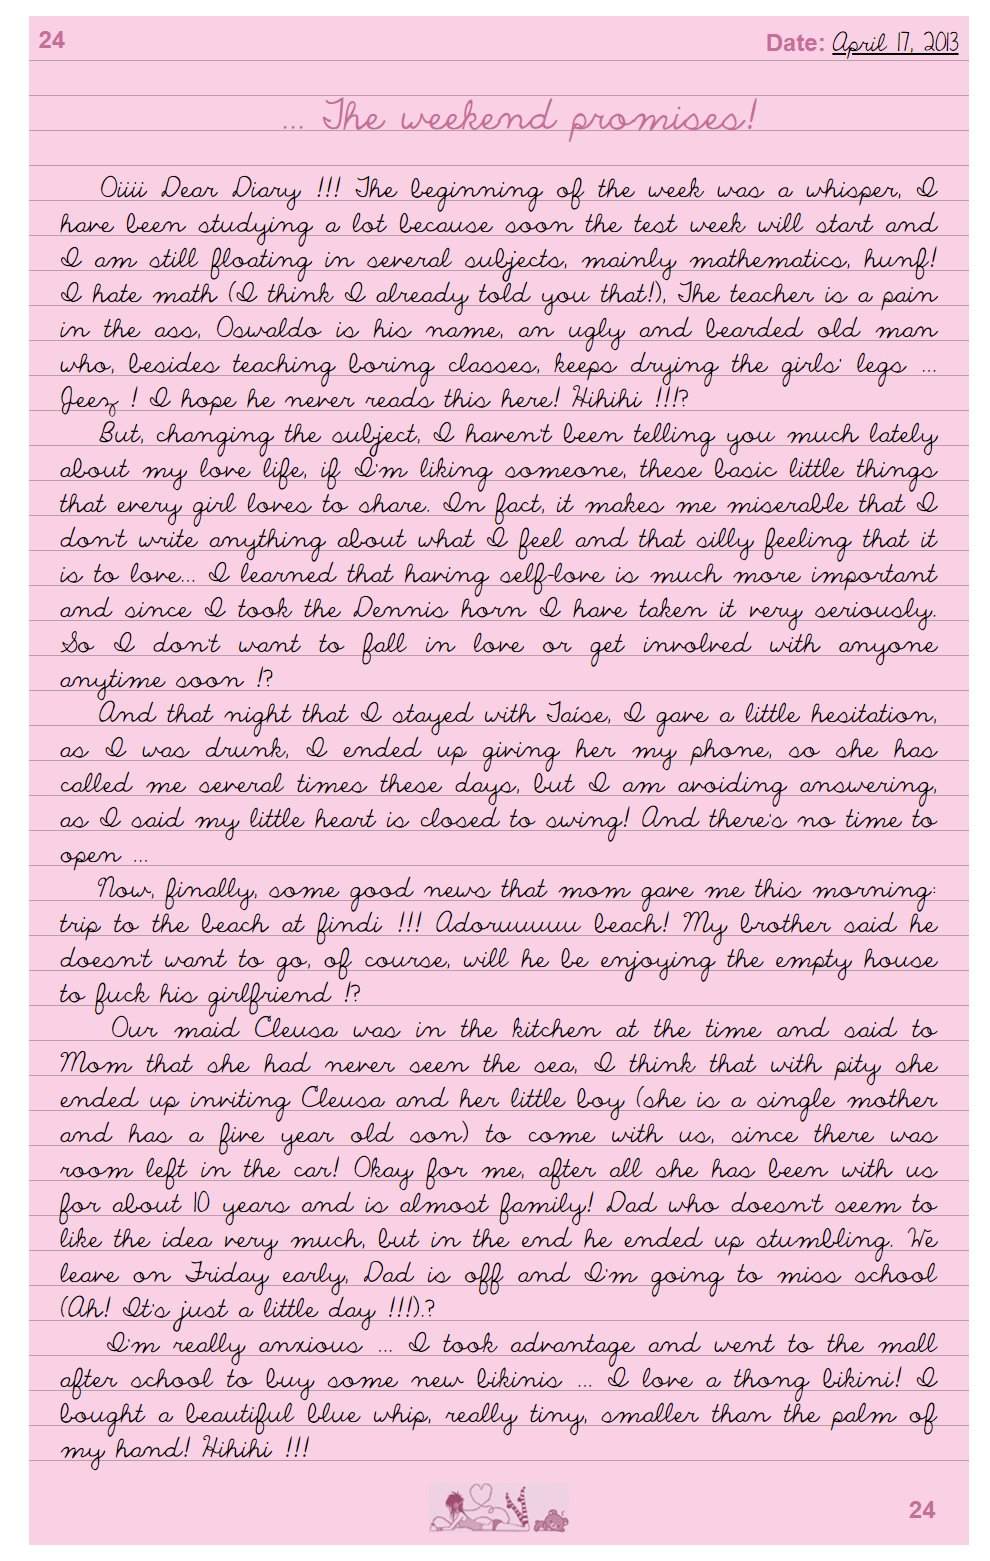 24
Date: April 17, 2013
... The weekend promises!
Oiiii Dear Diary !!! The beginning of the week was a whisper, I
have been studying a lot because soon the test week will start and
I am still floating in several subjects, mainly mathematics, hunf!
I hate math (I think I already told you that!), The teacher is a pain
in the ass, Oswaldo is his name, an ugly and bearded old man
who, besides teaching boring classes, keeps drying the girls' legs ...
Jeez ! I hope he never reads this here! Hihihi !!!?
But, changing the subject, I haven't been telling you much lately
about my love life, if I'm liking someone, these basic little things
that every girl loves to share. In fact, it makes me miserable that I
don't write anything about what I feel and that silly feeling that it
is to love... I learned that having self-love is much more important
and since I took the Dennis horn I have taken it very seriously.
So I don't want to fall in love or get involved with anyone
anytime soon !?
And that night that I stayed with Taíse, I gave a little hesitation,
as I was drunk, I ended up giving her my phone, so she has
called me several times these days, but I am avoiding answering,
as I said my little heart is closed to swing! And there's no time to
open ...
Now, finally, some good news that mom gave me this morning:
trip to the beach at findi !!! Adoruuuuuu beach! My brother said he
doesn't want to go, of course, will he be enjoying the empty house
to fuck his girlfriend !?
Our maid Cleusa was in the kitchen at the time and said to
Mom that she had never seen the sea, I think that with pity she
ended up inviting Cleusa and her little boy (she is a single mother
and has a five year old son) to come with us, since there was
room left in the car! Okay for me, after all she has been with us
for about 10 years and is almost family! Dad who doesn't seem to
like the idea very much, but in the end he ended up stumbling. We
leave on Friday early, Dad is off and I'm going to miss school
(Ah! It's just a little day !!!).?
I'm really anxious ... I took advantage and went to the mall
after school to buy some new bikinis ... I love a thong bikini! I
bought a beautiful blue whip, really tiny, smaller than the palm of
my hand! Hihihi !!!
24